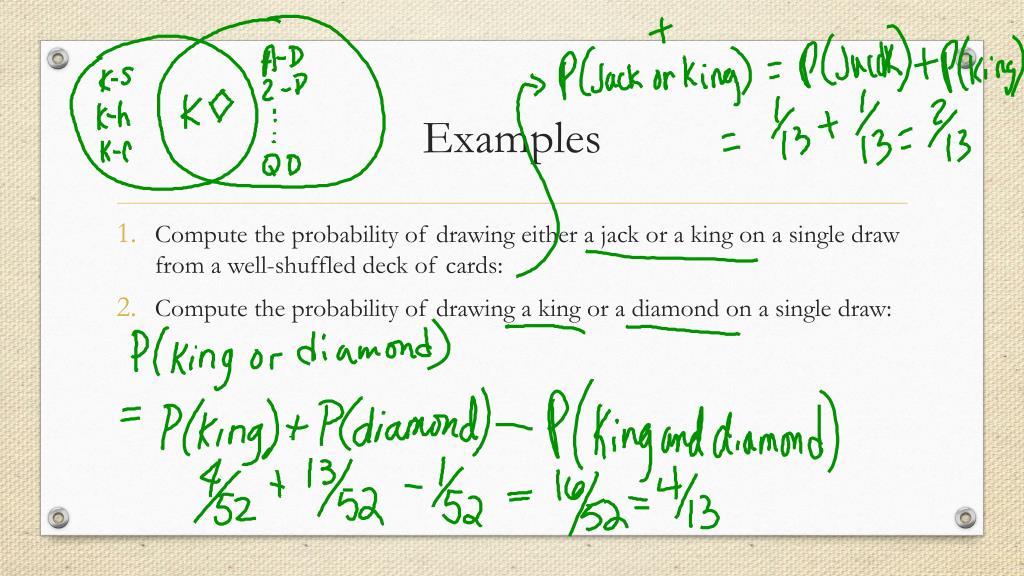 K-S
K-h
K-C
K ◇
A-D
2-D
⋮
Q D
+
P(Jack or King) = P(Jack) + P(King)
= 1/13 + 1/13 = 2/13
Examples
1. Compute the probability of drawing either a jack or a king on a single draw
from a well-shuffled deck of cards:
2. Compute the probability of drawing a king or a diamond on a single draw:
P(King or diamond)
= P(King) + P(diamond) — P(King and diamond)
4/52 + 13/52 - 1/52 = 16/52 = 4/13